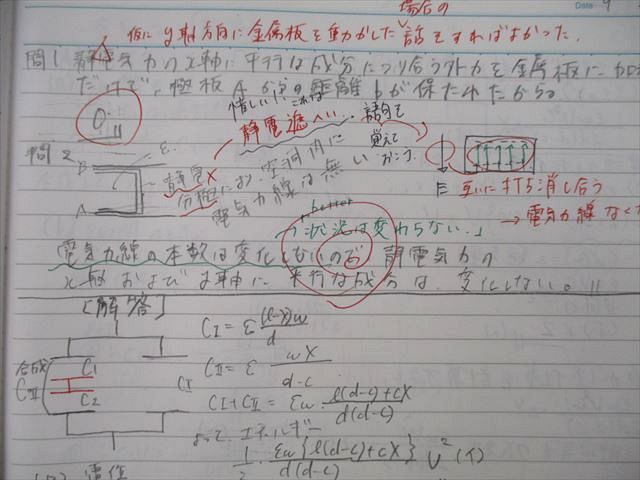 場合の
仮にy軸方向に金属板を動かした話をすればよかった.
Date 9
問1 静電気力のx軸に平行な成分につり合う外力を金属板に加
だけで、極板Aからの距離bが保たれたから。
惜しい!! これは
静電遮へい… 語句で
覚えて
おこう.
問2
B ε.
A
静電
分極 空洞内に
電気力線は無い
E 互いに打ち消し合う
→ 電気力線なく
better
「状況は変わらない.」
電気力線の本数は変化しないので 静電気力の
x軸およびy軸に平行な成分は、変化しない。
[解答]
合成
CⅡ
C1
C2
CⅠ
CⅠ = ε (l-x)w / d
CⅡ = ε wX / d-c
CⅠ+CⅡ = εw · l(d-c)+cX / d(d-c)
よって、エネルギー
1/2 · εw{l(d-c)+cX} / d(d-c) V² (イ)
電位